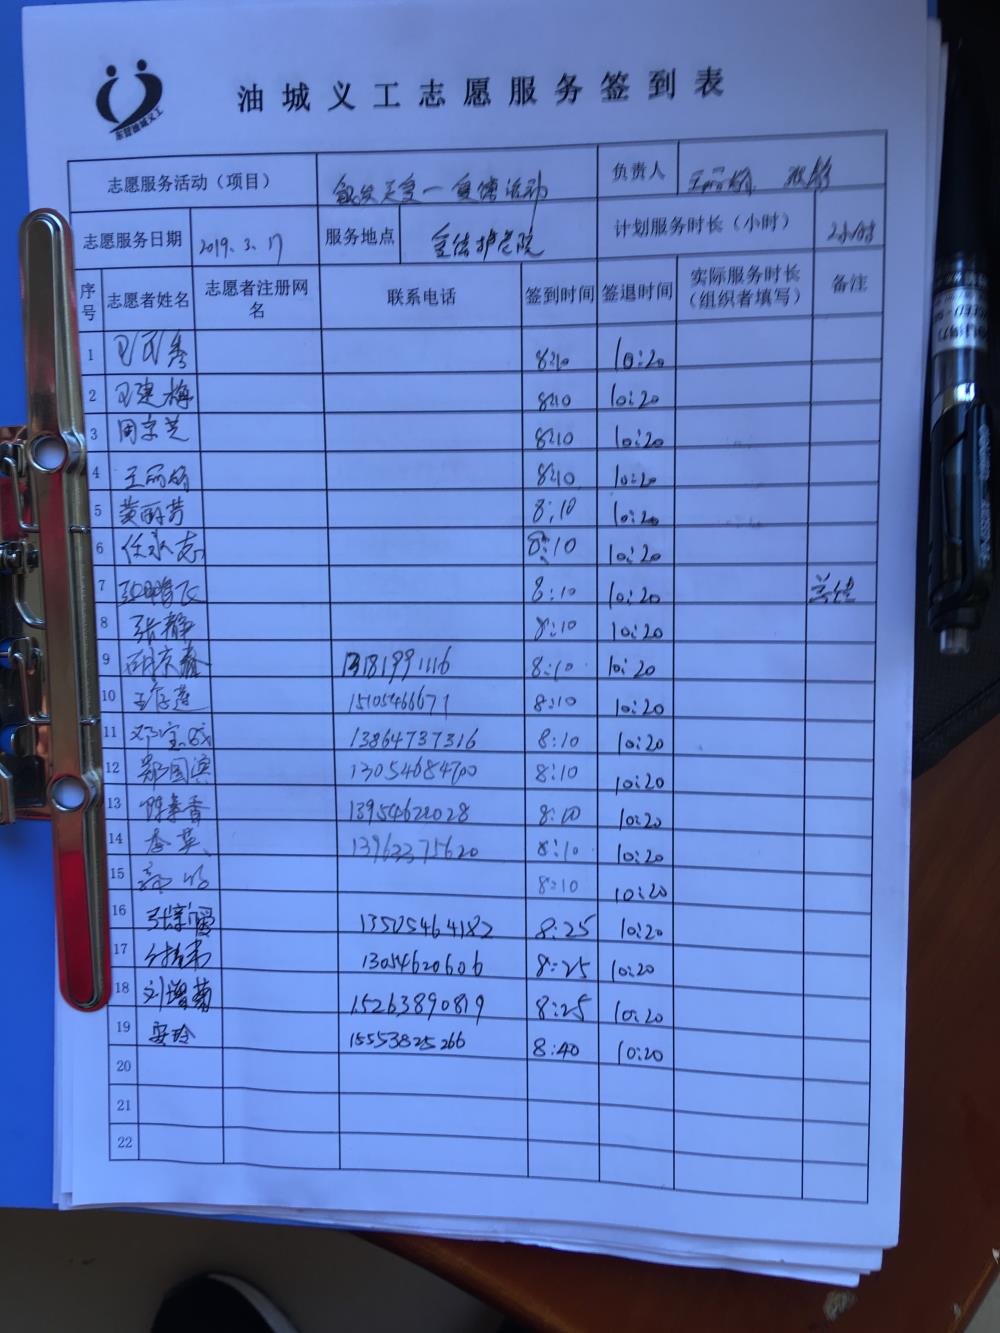 东营油城义工
油城义工志愿服务签到表
志愿服务活动（项目） 负责人
志愿服务日期 2019.3.17 服务地点 护老院 计划服务时长（小时） 2小时
序号 志愿者姓名 志愿者注册网名 联系电话 签到时间 签退时间 实际服务时长（组织者填写） 备注
1 8:10 10:20
2 王建梅 8:10 10:20
3 周宗芝 8:10 10:20
4 王丽娟 8:10 10:20
5 黄丽芳 8:10 10:20
6 任永志 8:10 10:20
7 张鹏飞 8:10 10:20
8 张静 8:10 10:20
9 13181991116 8:10 10:20
10 15105466671 8:10 10:20
11 13864737316 8:10 10:20
12 郑国滨 13054684700 8:10 10:20
13 13954622028 8:10 10:20
14 13962375620 8:10 10:20
15 8:10 10:20
16 13505464182 8:25 10:20
17 13054620606 8:25 10:20
18 刘增菊 15263890819 8:25 10:20
19 安玲 15553825266 8:40 10:20
20
21
22